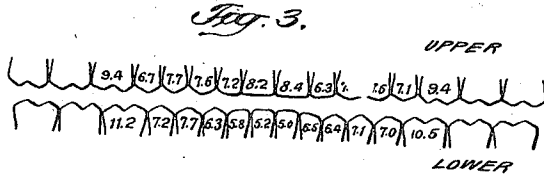 Fig. 3.
UPPER
9.4 6.7 7.7 7.6 7.2 8.2 8.4 6.3 7. 7.6 7.1 9.4
11.2 7.2 7.7 6.3 5.8 5.2 5.0 5.5 6.4 7.1 7.0 10.5
LOWER